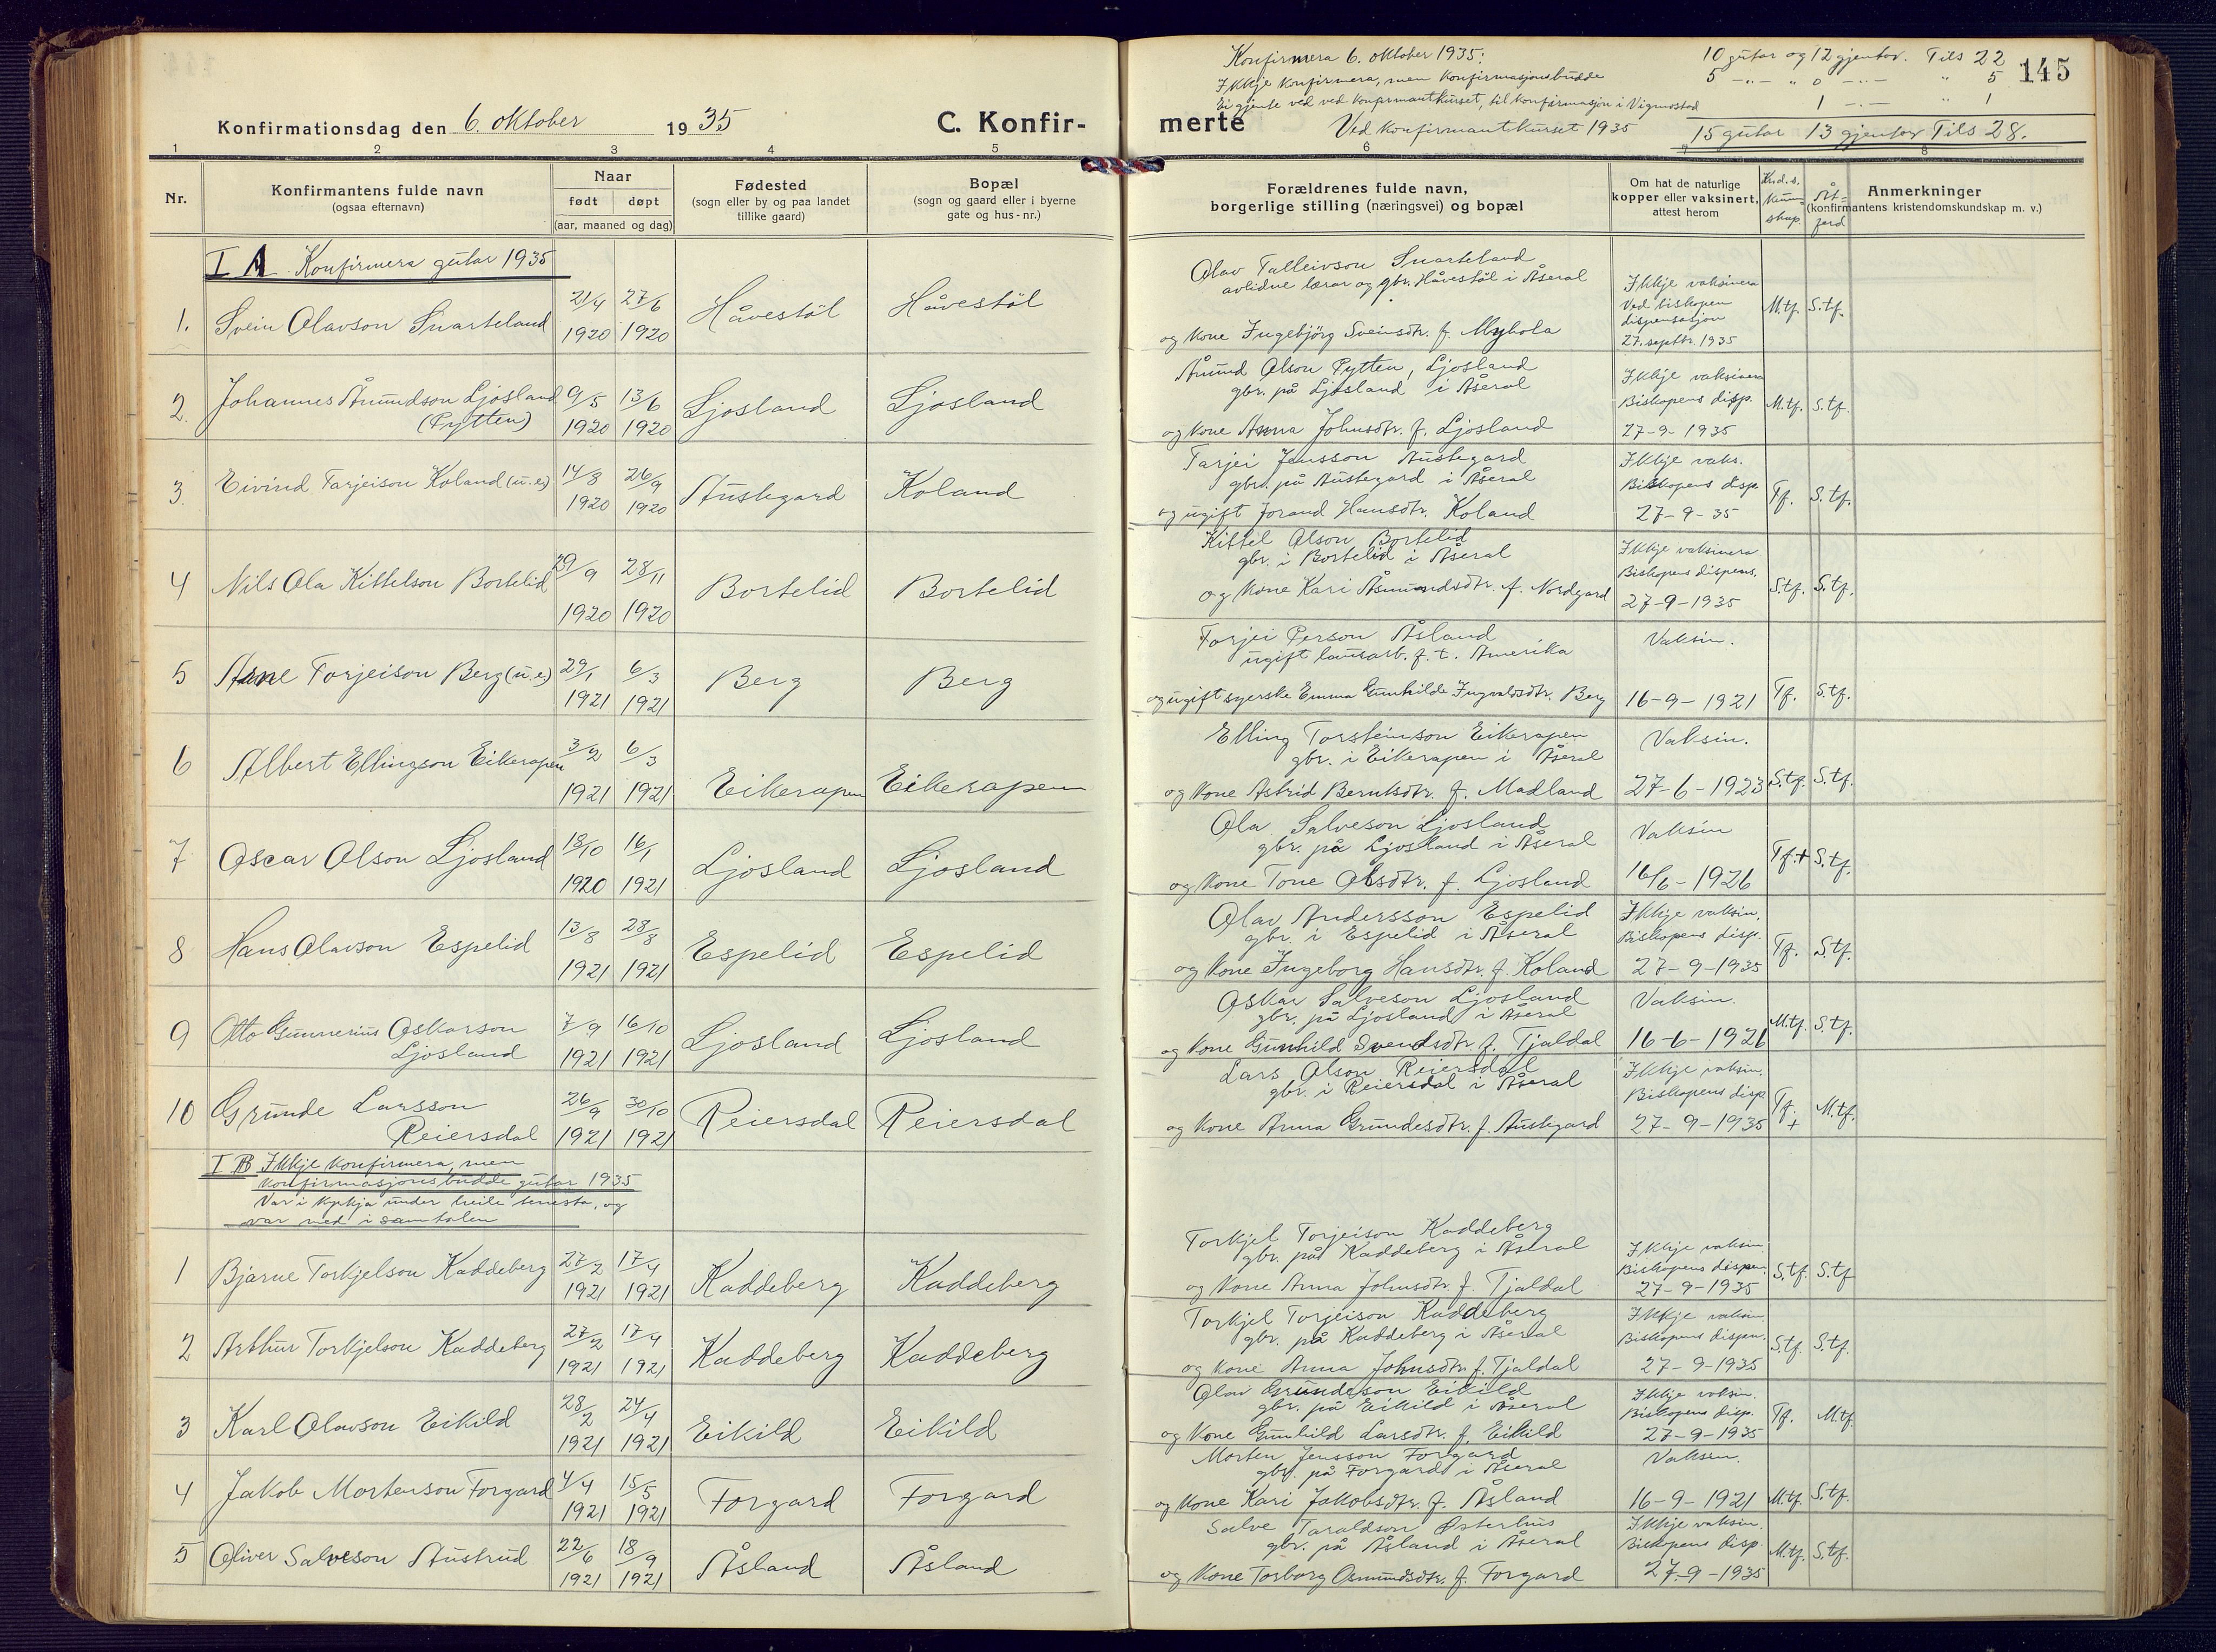 Konfirmationsdag den 6. oktober 1935
C. Konfir-
merte
145
Konfirmera 6. oktober 1935: 10 gutar og 12 gjentor. Tils 22
Ikkje konfirmera, men konfirmasjonsbudde 5 -"- " 0 -"- " 5
Ei gjente ved ved konfirmantkurset, til konfirmasjon i Vigmostad 1 -"- " 1
Ved konfirmantkurset 1935 15 gutar 13 gjentor Tils 28.
1 2 3 4 5 6 8
Nr.
Konfirmantens fulde navn
(ogsaa efternavn)
Naar
født døpt
(aar, maaned og dag)
Fødested
(sogn eller by og paa landet
tillike gaard)
Bopæl
(sogn og gaard eller i byerne
gate og hus-nr.)
Forældrenes fulde navn,
borgerlige stilling (næringsvei) og bopæl
Om hat de naturlige
kopper eller vaksinert,
attest herom
Krd.s.
kunn-
skap
Åt-
ferd
Anmerkninger
(konfirmantens kristendomskundskap m. v.)
I A. Konfirmera gutar 1935
1. Svein Olavson Snarteland 21/4 1920 27/6 1920 Håvestöl Håvestöl
Olav Talleivson Snarteland
avlidne lærar og gbr. Håvestöl i Åseral
og kone Ingebjörg Sveinsdtr. f. Myhola
Ikkje vaksinera
Ved biskopen
dispensasjon
27. septbr. 1935
M.tf. S.tf.
2. Johannes Åmundson Ljosland
(Pytten)
9/5 1920 13/6 1920 Ljosland Ljosland
Åmund Olson Pytten, Ljosland
gbr. på Ljosland i Åseral
og kone Anna Johnsdtr. f. Ljosland
Ikkje vaksinera
Biskopens disp.
27-9-1935
M.tf. S.tf.
3. Eivind Tarjeison Koland (u.e.) 14/8 1920 26/9 1920 Austegard Koland
Tarjei Jensson Austegard
gbr. på Austegard i Åseral
og ugift Jorand Hansdtr. Koland
Ikkje vaks.
Biskopens disp
27-9-35
Tf. S.tf.
4 Nils Ola Kittelson Bortelid 29/9 1920 28/11 1920 Bortelid Bortelid
Kittel Olson Bortelid
gbr. i Bortelid i Åseral
og kone Kari Åsmundsdtr. f. Nordgard
Ikkje vaksinera
Biskopens dispens.
27-9-1935
S.tf. S.tf.
5 Arne Torjeison Berg (u.e.) 29/1 1921 6/3 1921 Berg Berg
Torjei Person Åsland
ugift lausarb. f.t. Amerika
og ugift syerske Emma Gunhilde Ingvaldsdtr. Berg
Vaksin.
16-9-1921
Tf. S.tf.
6 Albert Ellingson Eikerapen 3/2 1921 6/3 1921 Eikerapen Eikerapen
Elling Torsteinson Eikerapen
gbr. i Eikerapen i Åseral
og kone Astrid Berntsdtr. f. Madland
Vaksin.
27-6-1923
S.tf. S.tf.
7 Oscar Olson Ljosland 13/10 1920 16/1 1921 Ljosland Ljosland
Ola Salveson Ljosland
gbr. på Ljosland i Åseral
og kone Tone Olsdtr. f. Ljosland
Vaksin
16/6-1926
Tf.+ S.tf.
8 Hans Olavson Espelid 13/8 1921 28/8 1921 Espelid Espelid
Olav Andersson Espelid
gbr. i Espelid i Åseral
og kone Ingeborg Hansdtr. f. Koland
Ikkje vaksin.
Biskopens disp.
27-9-1935
Tf. S.tf.
9 Otto Gunnerius Oskarson
Ljosland
7/9 1921 16/10 1921 Ljosland Ljosland
Oskar Salveson Ljosland
gbr. på Ljosland i Åseral
og kone Gunhild Svendsdtr f. Tjaldal
Vaksin.
16-6-1926
M.tf. S.tf.
10 Grunde Larsson
Reiersdal
26/9 1921 30/10 1921 Reiersdal Reiersdal
Lars Olson Reiersdal
gbr. i Reiersdal i Åseral
og kone Anna Grundesdtr. f. Austegard
Ikkje vaksin.
Biskopens disp
27-9-1935
Tf. + M.tf.
I B Ikkje konfirmera, men
konfirmasjonsbudde gutar 1935
Var i kyrkja under heile tenesta, og
var med i samtalen
1 Bjarne Torkjelson Kaddeberg 27/2 1921 17/4 1921 Kaddeberg Kaddeberg
Torkjel Torjeison Kaddeberg
gbr. på Kaddeberg i Åseral
og kone Anna Johnsdtr. f. Tjaldal
Ikkje vaksin
Biskopens dispen.
27-9-1935
S.tf. S.tf
2 Arthur Torkjelson Kaddeberg 27/2 1921 17/4 1921 Kaddeberg Kaddeberg
Torkjel Torjeison Kaddeberg
gbr. på Kaddeberg i Åseral
og kone Anna Johnsdtr. f. Tjaldal
Ikkje vaksin
Biskopens dispen.
27-9-1935
S.tf. S.tf.
3 Karl Olavson Eikild 28/2 1921 24/4 1921 Eikild Eikild
Olav Grundeson Eikild
gbr. på Eikild i Åseral
og kone Gunhild Larsdtr. f. Eikild
Ikkje vaksin.
Biskopens disp.
27-9-1935
Tf. M.tf
4 Jakob Mortenson Forgard 4/4 1921 15/5 1921 Forgard Forgard
Morten Jensson Forgard
gbr. på Forgard i Åseral
og kone Kari Jakobsdtr. f. Åsland
Vaksin.
16-9-1921
M.tf. S.tf.
5 Oliver Salveson Austrud 22/6 1921 18/9 1921 Åsland Åsland
Salve Taraldson Østerhus
gbr. på Åsland i Åseral
og kone Torborg Osmundsdtr. f. Forgard
Ikkje vaksin.
Biskopens disp.
27-9-1935
M.tf. S.tf.